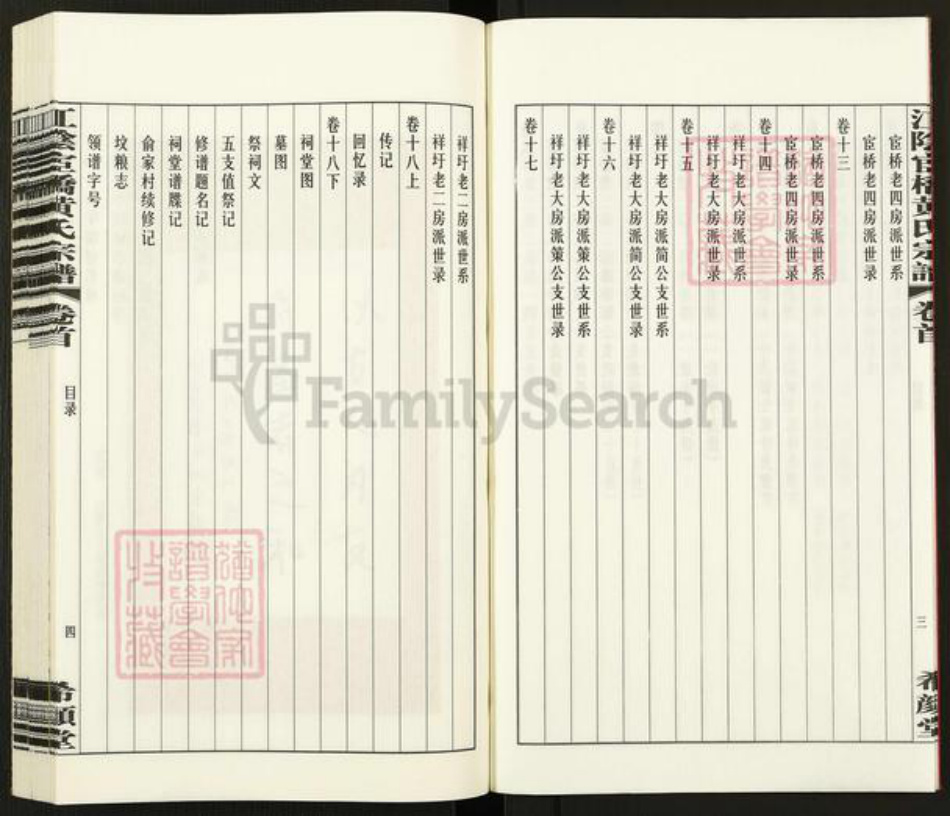 江陰宦橋黄氏宗譜 卷首
三
希顔堂
宦桥老四房派世系
宦桥老四房派世录
卷十三
宦桥老四房派世系
宦桥老四房派世录
卷十四
祥圩老大房派世系
祥圩老大房派世录
卷十五
祥圩老大房派简公支世系
祥圩老大房派简公支世录
卷十六
祥圩老大房派策公支世系
祥圩老大房派策公支世录
卷十七
祥圩老二房派世系
祥圩老二房派世录
卷十八上
传记
回忆录
卷十八下
祠堂图
墓图
祭祠文
五支值祭记
修谱题名记
祠堂谱牒记
俞家村续修记
坟粮志
领谱字号
江陰宦橋黄氏宗譜 卷首
目录
四
希顔堂
FamilySearch